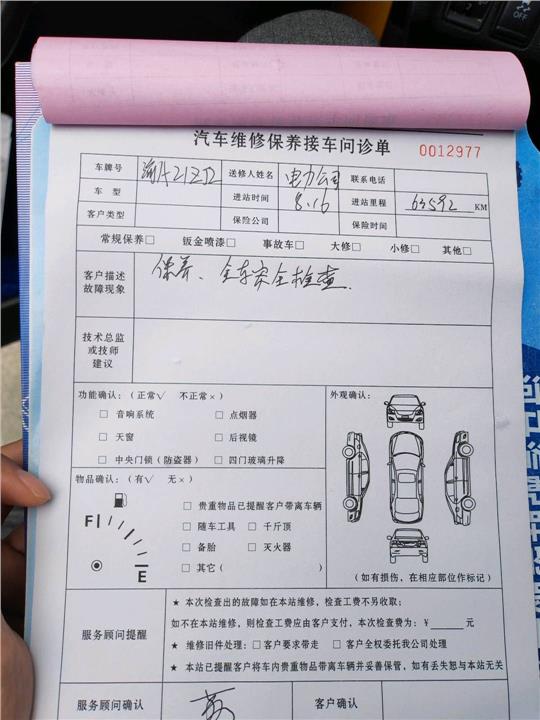 汽车维修保养接车问诊单 0012977
车牌号 渝A21Z72 送修人姓名 电力公司 联系电话
车 型 进站时间 8.16 进站里程 63592 KM
客户类型 保险公司 保险时间
常规保养□ 钣金喷漆□ 事故车□ 大修□ 小修□ 其他□
客户描述 故障现象 保养、全车安全检查.
技术总监
或技师
建议
功能确认：（正常√ 不正常×） 外观确认：
□ 音响系统 □ 点烟器
□ 天窗 □ 后视镜
□ 中央门锁（防盗器） □ 四门玻璃升降
物品确认：（有√ 无×）
□ 贵重物品已提醒客户带离车辆
F □ 随车工具 □ 千斤顶
□ 备胎 □ 灭火器
E □ 其它（ ）
（如有损伤，在相应部位作标记）
服务顾问提醒
★ 本次检查出的故障如在本站维修，检查工费不另收取；
如不在本站维修，则检查工费应由客户支付，本次检查费为：￥ 元
★ 维修旧件处理：□ 客户要求带走 □ 客户全权委托我公司处理
★ 本站已提醒客户将车内贵重物品带离车辆并妥善保管，如有丢失恕与本站无关
服务顾问确认 客户确认
OFF